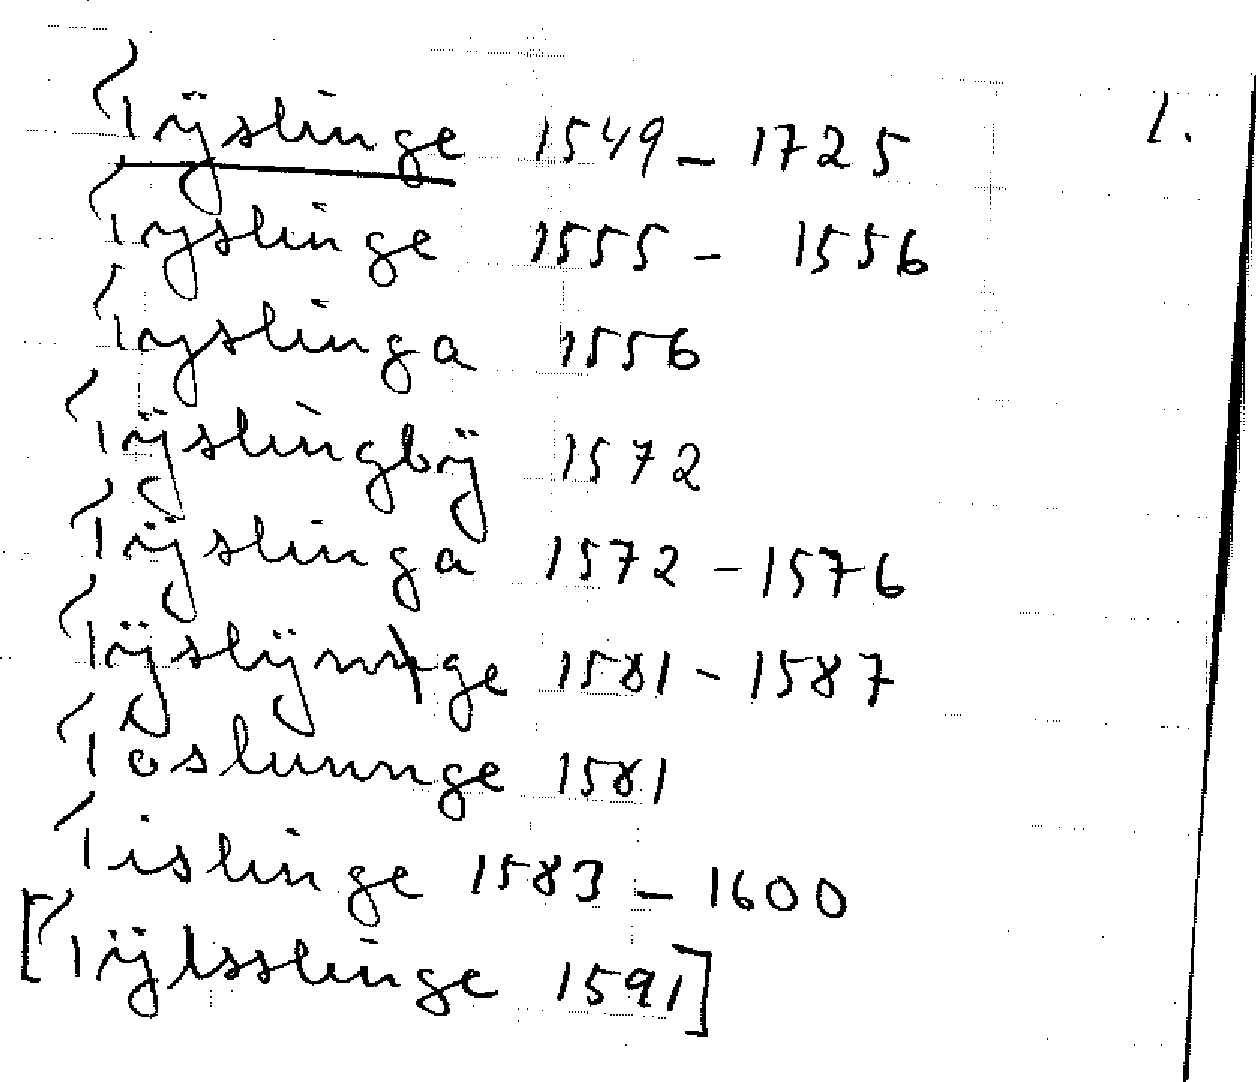 Tÿslinge 1549 – 1725 1.
Tyslinge 1555 – 1556
Tyslinga 1556
Tÿslingbÿ 1572
Tÿslinga 1572 – 1576
Tÿslÿnnge 1581 – 1587
Toslunnge 1581
Tislinge 1583 – 1600
[Tÿlsslinge 1591]